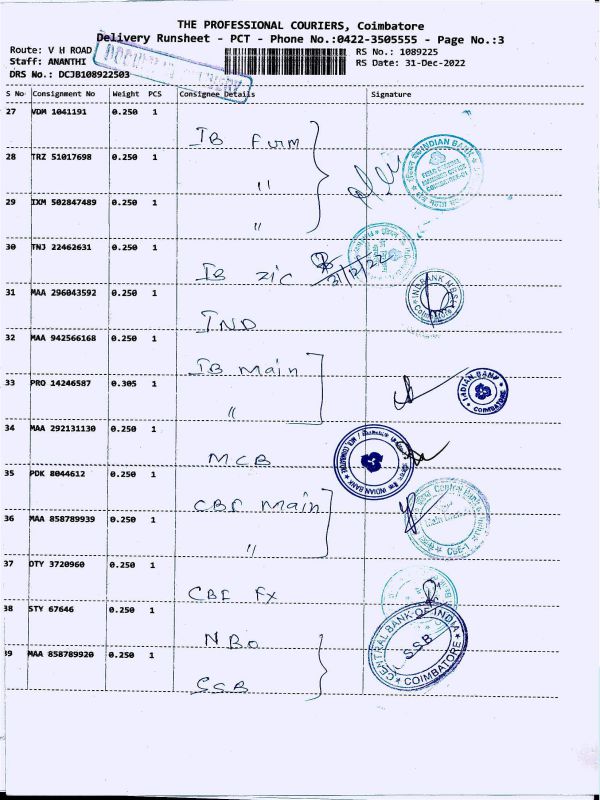 THE PROFESSIONAL COURIERS, Coimbatore
Delivery Runsheet - PCT - Phone No.:0422-3505555 - Page No.:3
Route: V H ROAD
RS No.: 1089225
Staff: ANANTHI
RS Date: 31-Dec-2022
DRS No.: DCJB108922503
S No Consignment No Weight PCS Consignee Details Signature
27 VDM 1041191 0.250 1
IB Firm
28 TRZ 51017698 0.250 1
"
29 IXM 502847489 0.250 1
"
30 TNJ 22462631 0.250 1
IB ZIC
31/12/22
31 MAA 296043592 0.250 1
IND
32 MAA 942566168 0.250 1
IB Main
33 PRO 14246587 0.305 1
"
34 MAA 292131130 0.250 1
MCB
35 PDK 8044612 0.250 1
CBI Main
36 MAA 858789939 0.250 1
"
37 OTY 3720960 0.250 1
CBI FX
38 STY 67646 0.250 1
NBO
39 MAA 858789920 0.250 1
SSB
INDIAN BANK
INDIAN BANK
COIMBATORE
INDIAN BANK
Central Bank
CBE-1
CENTRAL BANK OF INDIA
SSB
COIMBATORE